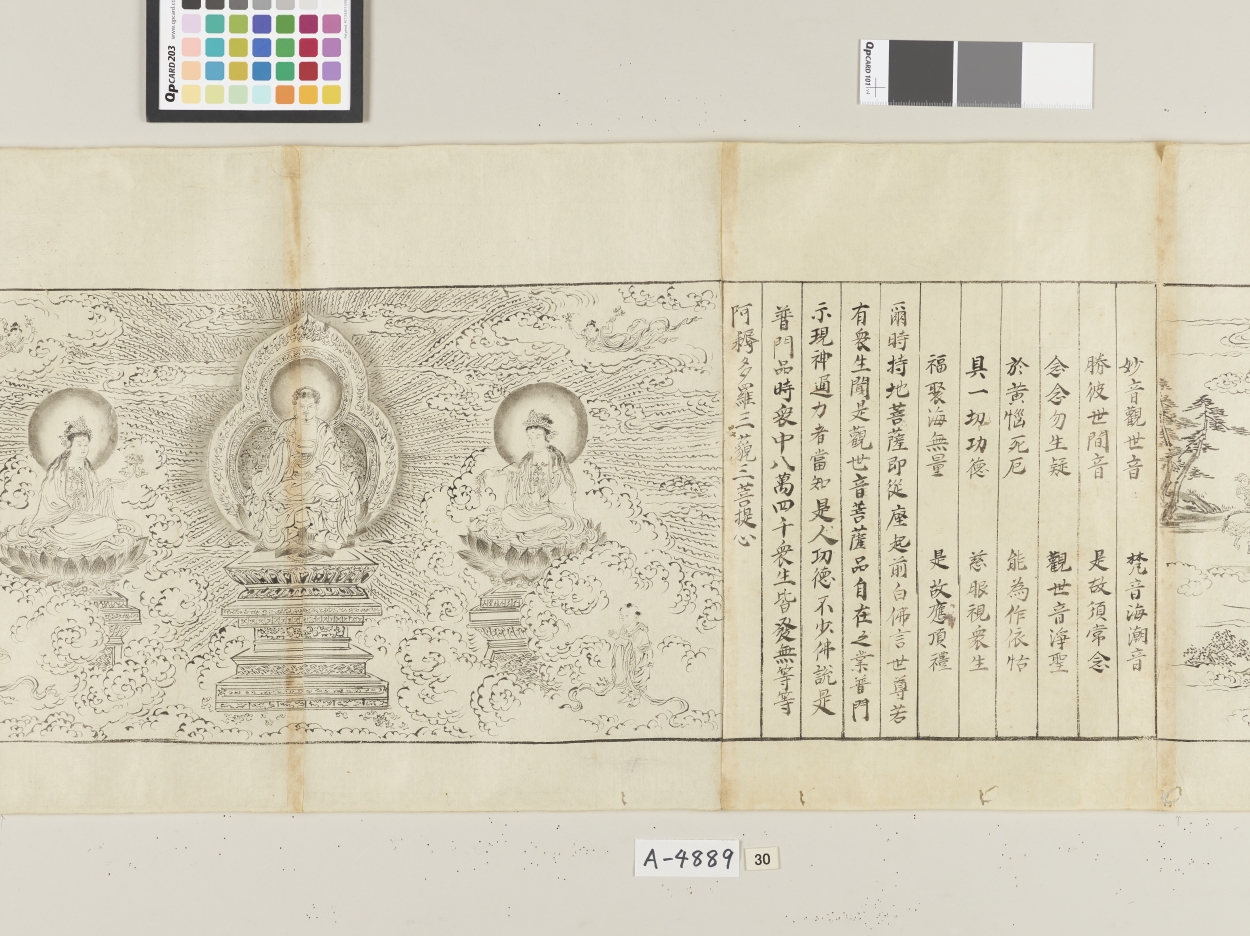 妙音觀世音　梵音海潮音
勝彼世間音　是故須常念
念念勿生疑　觀世音淨聖
於黃惱死厄　能為作依怙
具一切功德　慈眼視衆生
福聚海無量　是故應頂禮
爾時持地菩薩即從座起前白佛言世尊若
有衆生聞是觀世音菩薩品自在之業普門
示現神通力者當知是人功德不少佛說是
普門品時衆中八萬四千衆生皆發無等等
阿耨多羅三藐三菩提心
QpCARD 203
QpCARD 101
A-4889
30